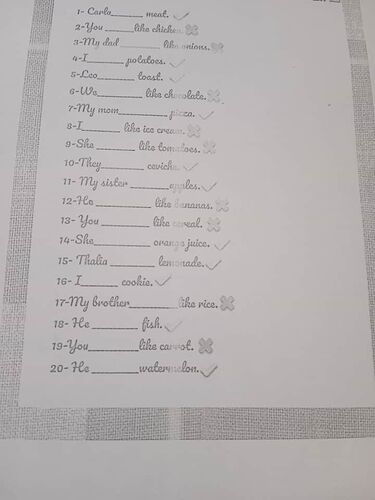 1- Carla_______ meat.
2-You ______like chicken.
3-My dad ________ like onions.
4-I______ potatoes.
5-Leo_______ toast.
6-We_______ like chocolate.
7-My mom________ pizza.
8-I________ like ice cream.
9-She ________ like tomatoes.
10-They________ ceviche.
11- My sister ________apples.
12-He __________ like bananas.
13- You _________ like cereal.
14-She__________ orange juice.
15- Thalia _________ lemonade.
16- I_______ cookie.
17-My brother_________like rice.
18- He _________ fish.
19-You_________like carrot.
20- He _________watermelon.